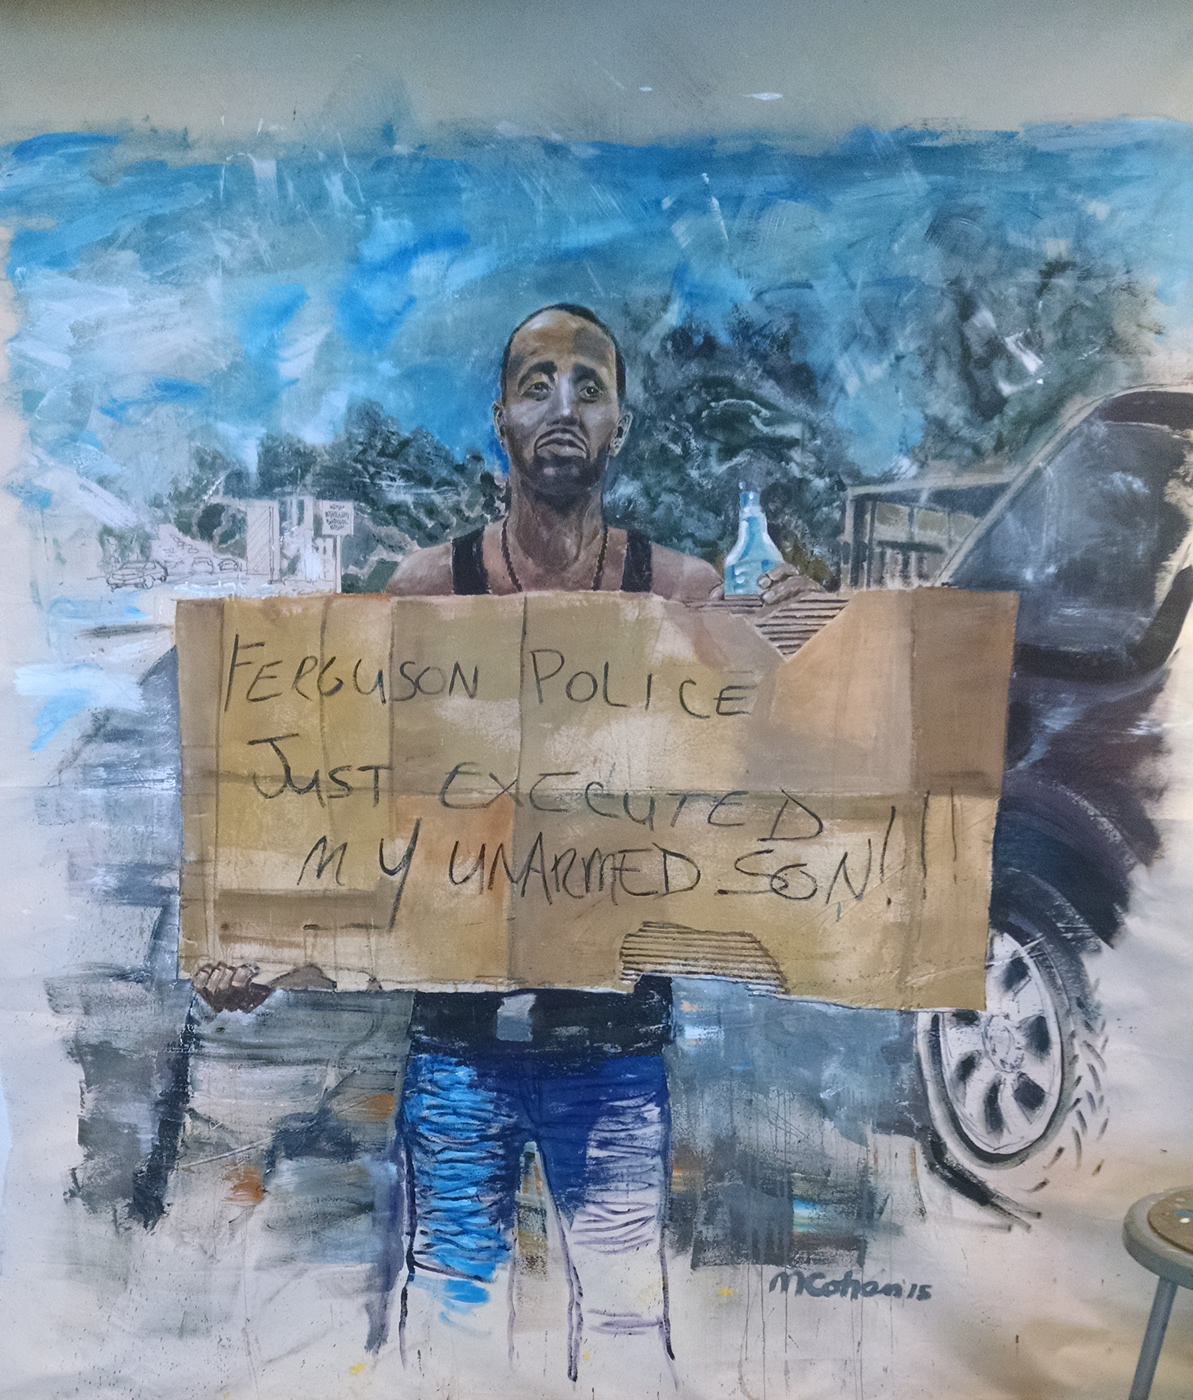 FERGUSON POLICE
JUST EXECUTED
MY UNARMED SON!!!
MCohen15